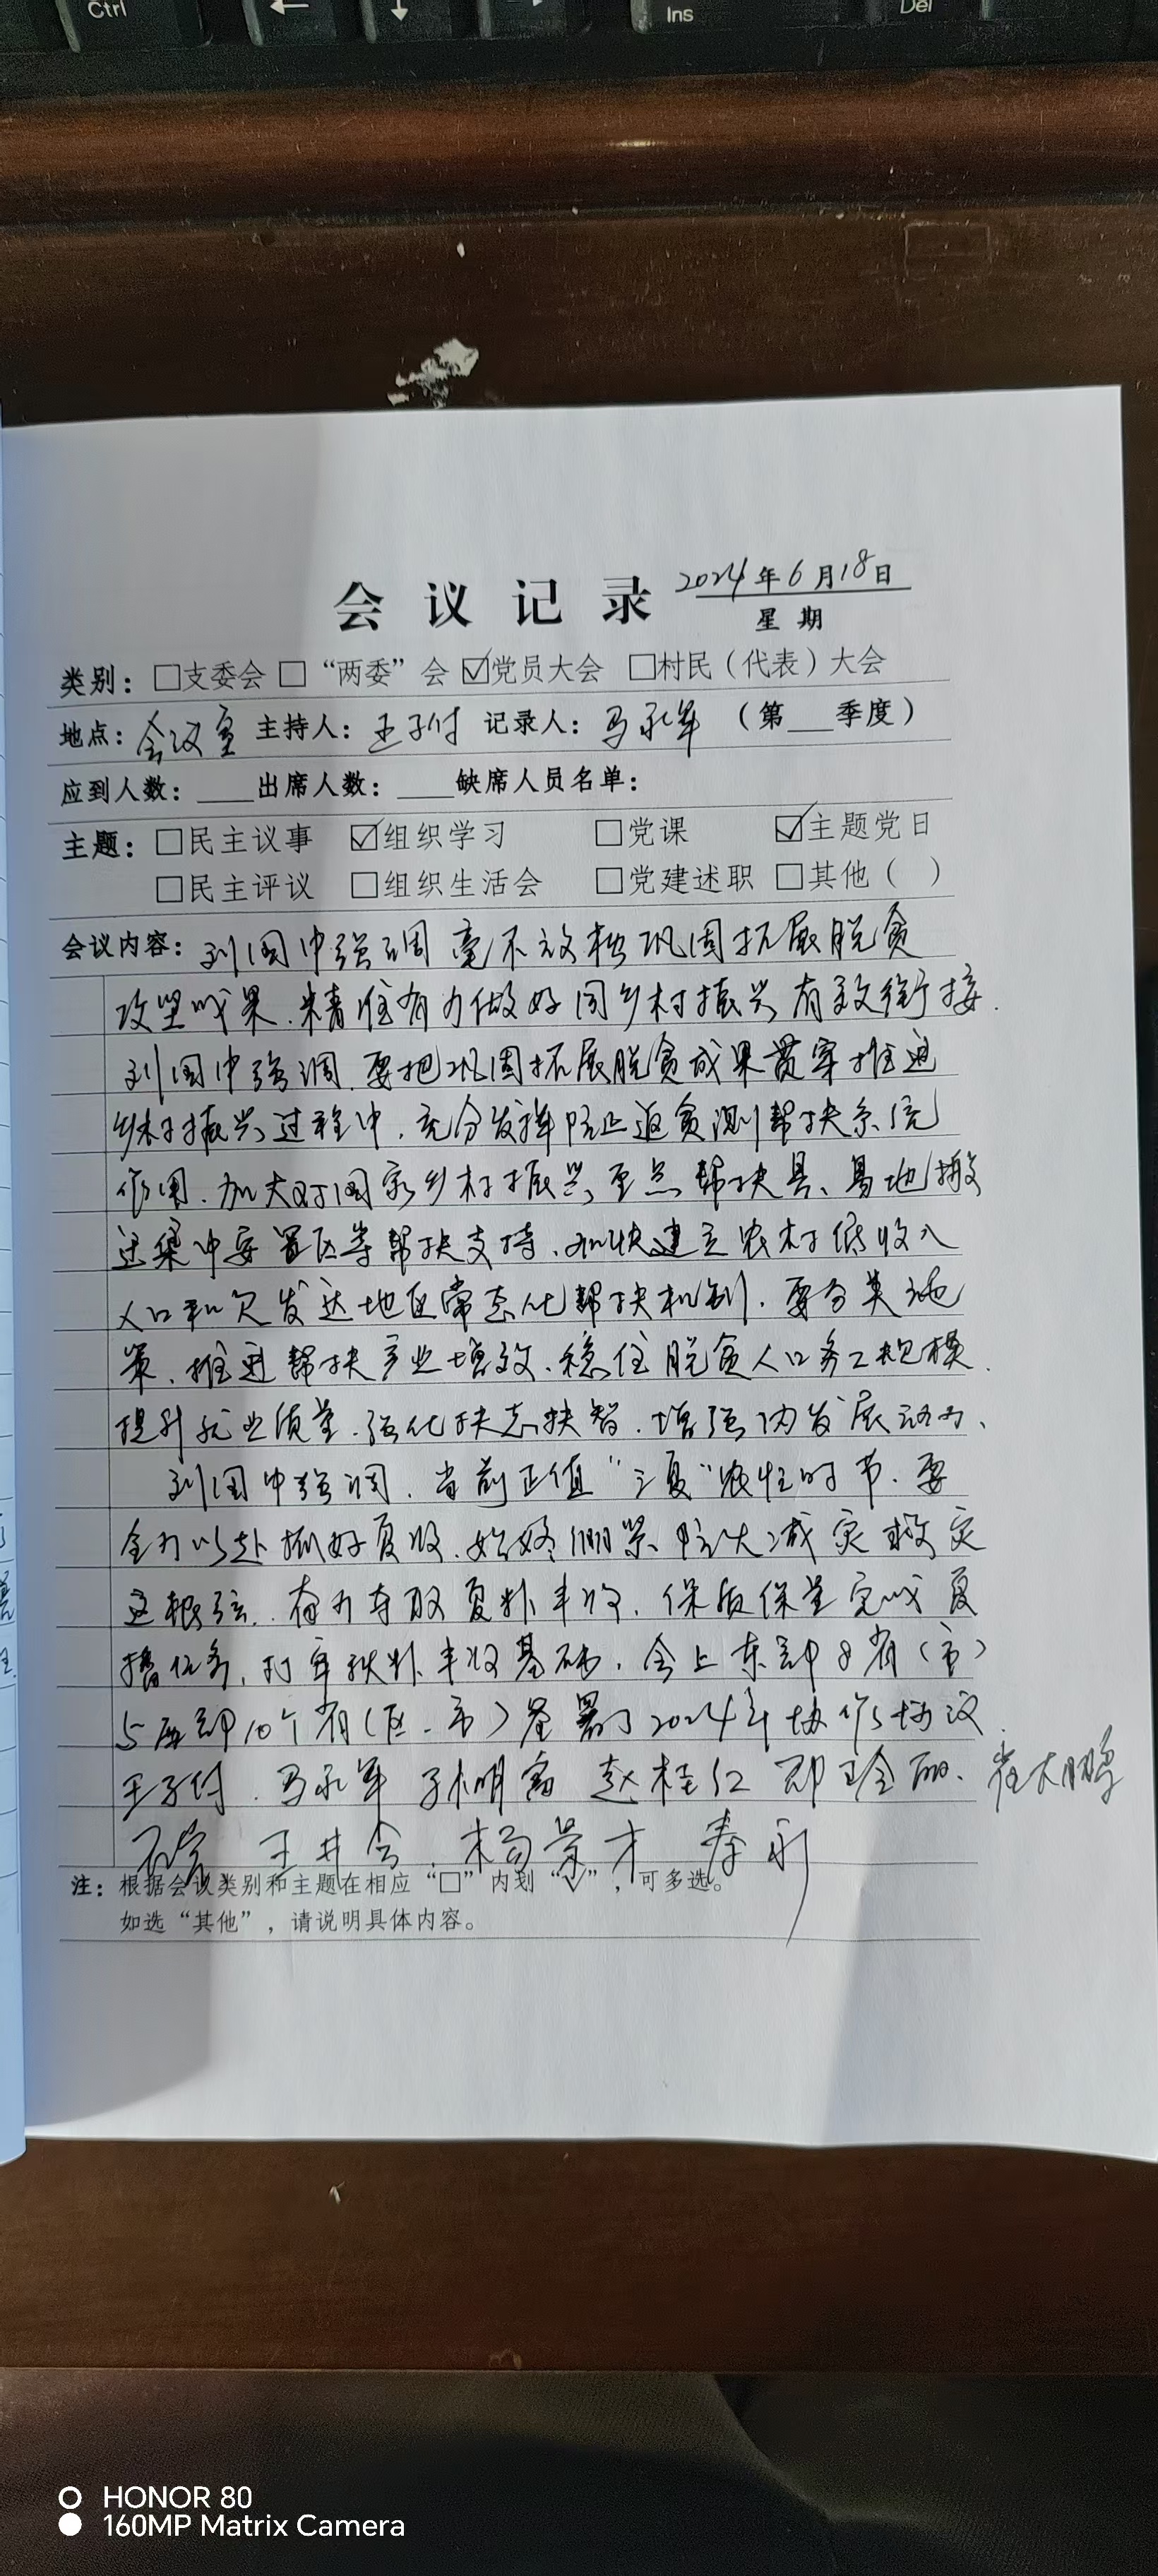 Ctrl
Ins
Del
会议记录 2024年6月18日
星期
类别：□支委会 □“两委”会 ☑党员大会 □村民（代表）大会
地点：会议室 主持人：王子付 记录人：马永军 （第___季度）
应到人数：____出席人数：____缺席人员名单：
主题：□民主议事 ☑组织学习 □党课 ☑主题党日
□民主评议 □组织生活会 □党建述职 □其他（ ）
会议内容：刘国中强调毫不放松巩固拓展脱贫
攻坚成果、精准有力做好同乡村振兴有效衔接.
刘国中强调.要把巩固拓展脱贫成果贯穿推进
乡村振兴过程中.充分发挥防止返贫测帮扶系统
作用.加大对国家乡村振兴重点帮扶县、易地搬
迁集中安置区等帮扶支持、加快建立农村低收入
人口和欠发达地区常态化帮扶机制.要分类施
策.推进帮扶产业增效、稳住脱贫人口务工规模.
提升就业质量.强化扶志扶智.增强内发展动力、
刘国中强调.当前正值“三夏”农忙时节.要
全力以赴抓好夏收.始终绷紧防大减灾救灾
这根弦.奋力夺取夏粮丰收.保质保量完成夏
播任务.打牢秋粮丰收基础.会上东部8省(市)
与西部10个省(区.市)签署了2024年协作协议.
王子付.马永军 孙明富 赵桂红 邓玲丽、崔大鹏
石富 王井会 杨景才 秦利
注：根据会议类别和主题在相应“□”内划“√”，可多选。
如选“其他”，请说明具体内容。
HONOR 80
160MP Matrix Camera